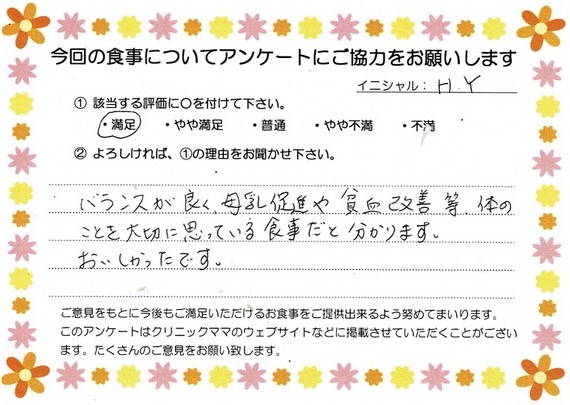 今回の食事についてアンケートにご協力をお願いします
イニシャル: H.Y
① 該当する評価に〇を付けて下さい。
・満足 ・やや満足 ・普通 ・やや不満 ・不満
② よろしければ、①の理由をお聞かせ下さい。
バランスが良く、母乳促進や貧血改善等、体の
ことを大切に思っている食事だと分かります。
おいしかったです。
ご意見をもとに今後もご満足いただけるお食事をご提供出来るよう努めてまいります。
このアンケートはクリニックママのウェブサイトなどに掲載させていただくことがござい
ます。たくさんのご意見をお願い致します。